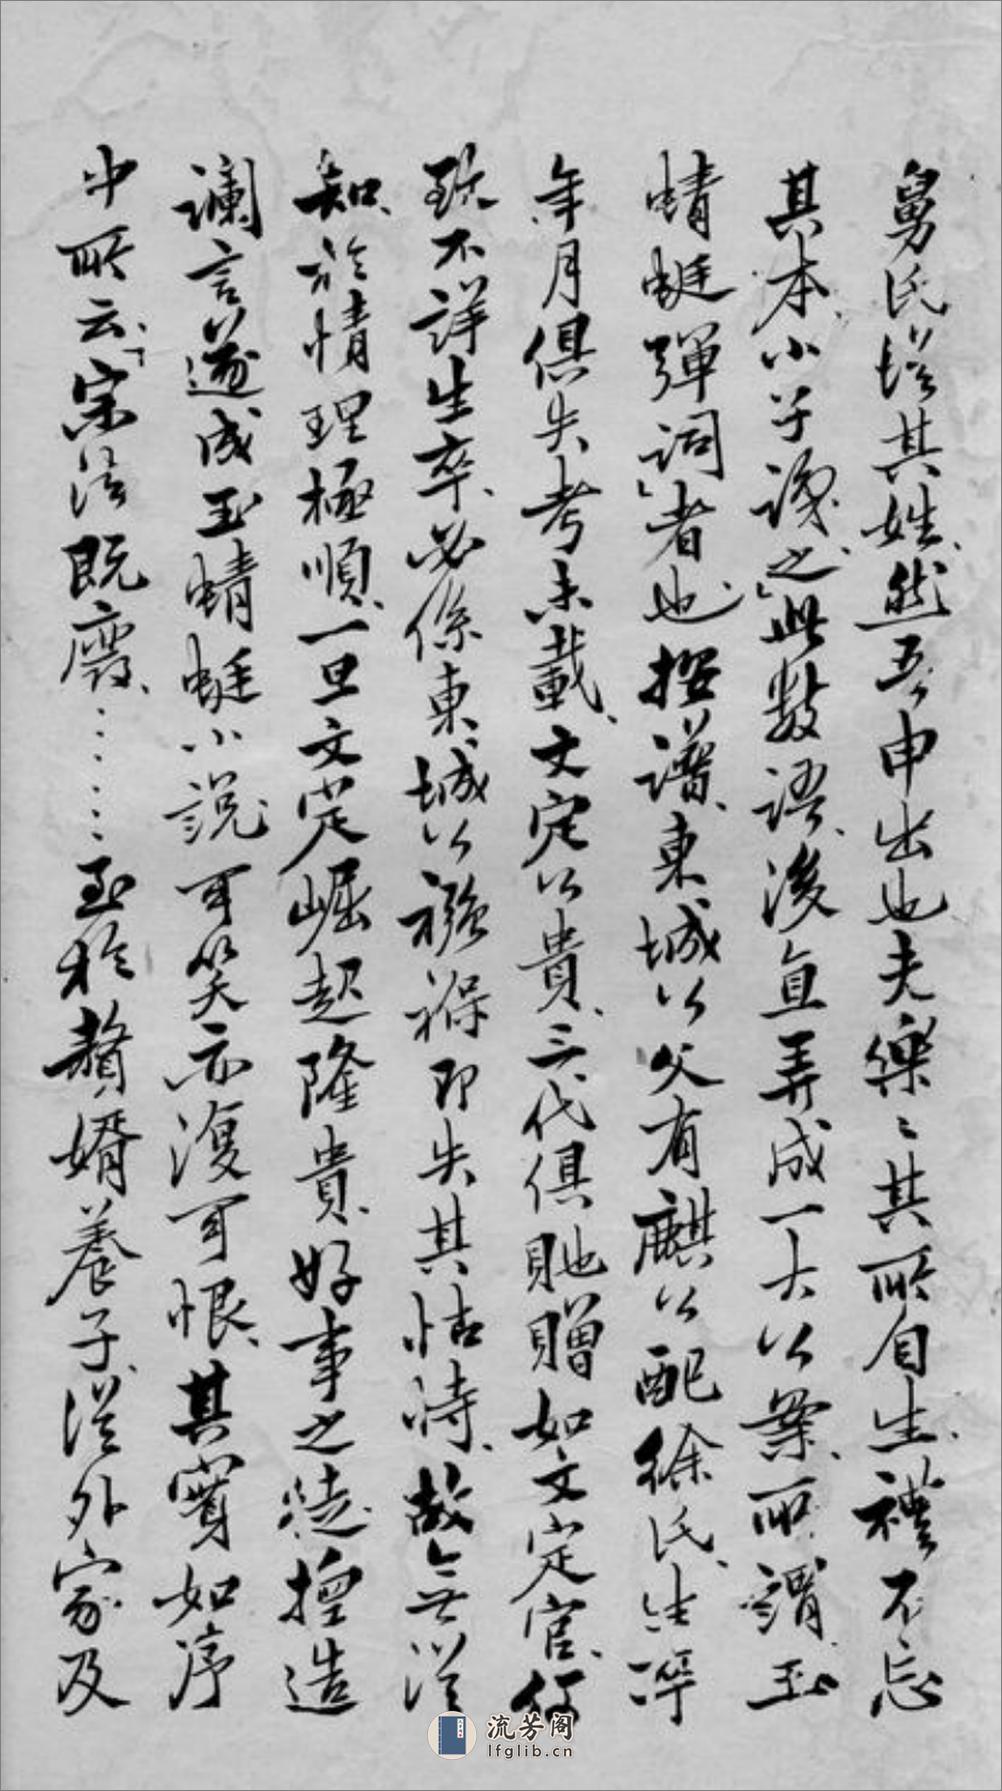 舅氏從其姓、然吾申出也夫樂〻其所自生、禮不忘
其本、小子識之」此數語、後直弄成一大公案、所謂「玉
蜻蜓彈詞」者也、按譜、東城公父有麒公配徐氏、生卒
年月俱失考未載、文定公貴、三代俱貤贈如文定官、何
致不詳生卒、必係東城公襁褓即失其怙恃、故無從
知、於情理極順、一旦文定崛起隆貴、好事之徒、擅造
讕言遂成玉蜻蜓小說、可笑亦復可恨、其實如序
中所云、「宗法既廢、⋯⋯至於贅婿養子、從外家及
流芳阁
lfglib.cn